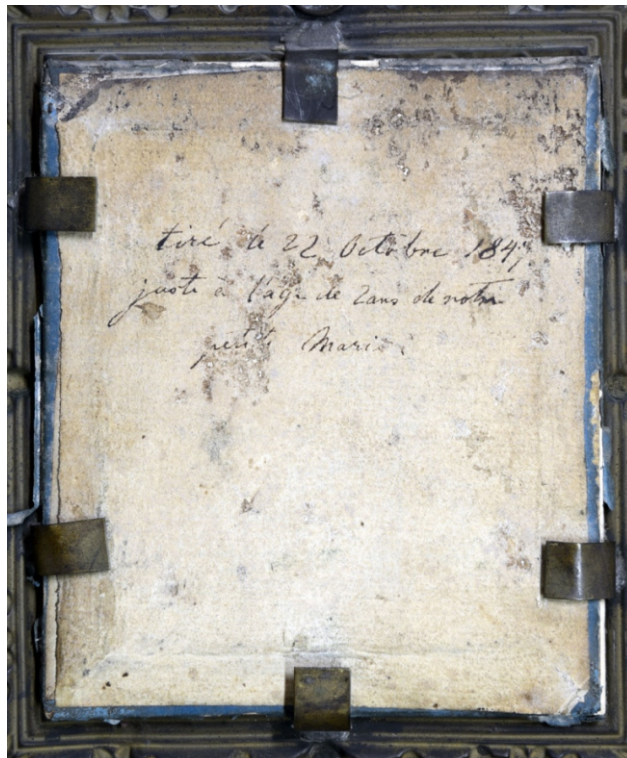 tiré le 22 Octobre 1847
juste à l'age de 2 ans de notre
petite Marie.